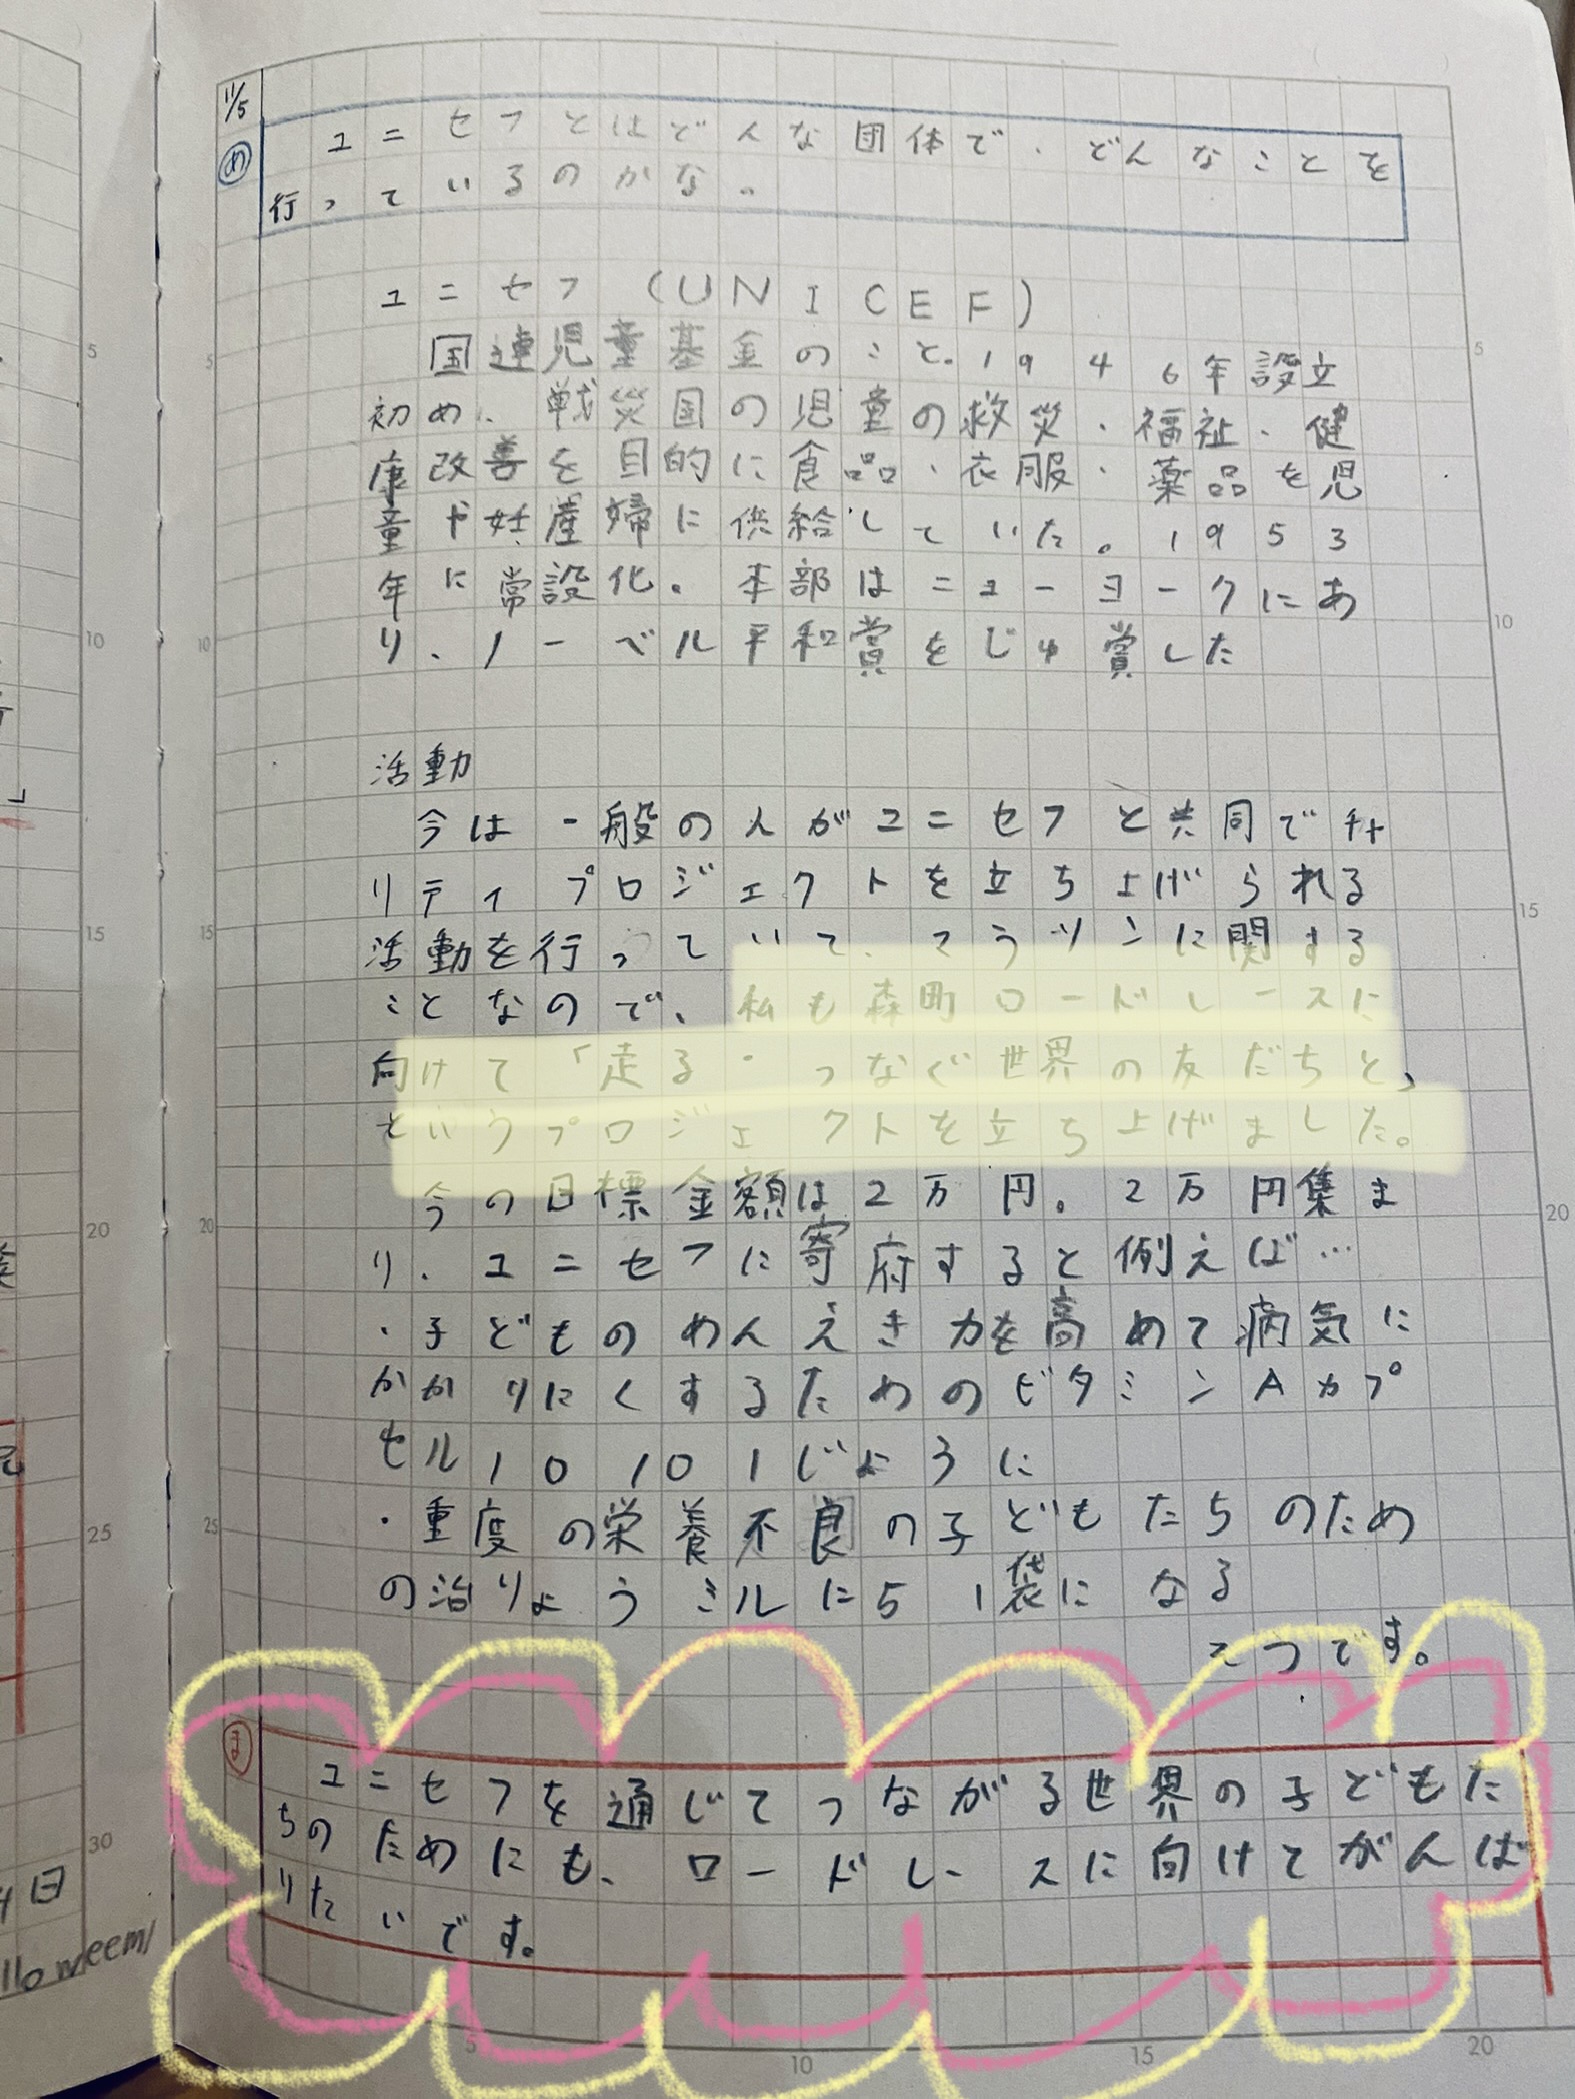 11/5
め
ユニセフとはどんな団体で、どんなことを
行っているのかな。
ユニセフ(UNICEF)
国連児童基金のこと。1946年設立
初め、戦災国の児童の救災・福祉・健
康改善を目的に食品・衣服・薬品を児
童や妊産婦に供給していた。1953
年に常設化。本部はニューヨークにあ
り、ノーベル平和賞をじゅ賞した
活動
今は一般の人がユニセフと共同でチャ
リティプロジェクトを立ち上げられる
活動を行っていて、マラソンに関する
ことなので、私も森町ロードレースに
向けて「走る・つなぐ世界の友だちと」
というプロジェクトを立ち上げました。
今の目標金額は2万円。2万円集ま
り、ユニセフに寄府すると例えば…
・子どものめんえき力を高めて病気に
かかりにくするためのビタミンAカプ
セル10101じょうに
・重度の栄養不良の子どもたちのため
の治りょうミルに51袋になる
そうです。
ま
ユニセフを通じてつながる世界の子どもた
ちのためにも、ロードレースに向けてがんば
りたいです。
5
10
15
20
25
30
5
10
15
20
25
5
10
15
20
5
10
15
20
日
lloweem/